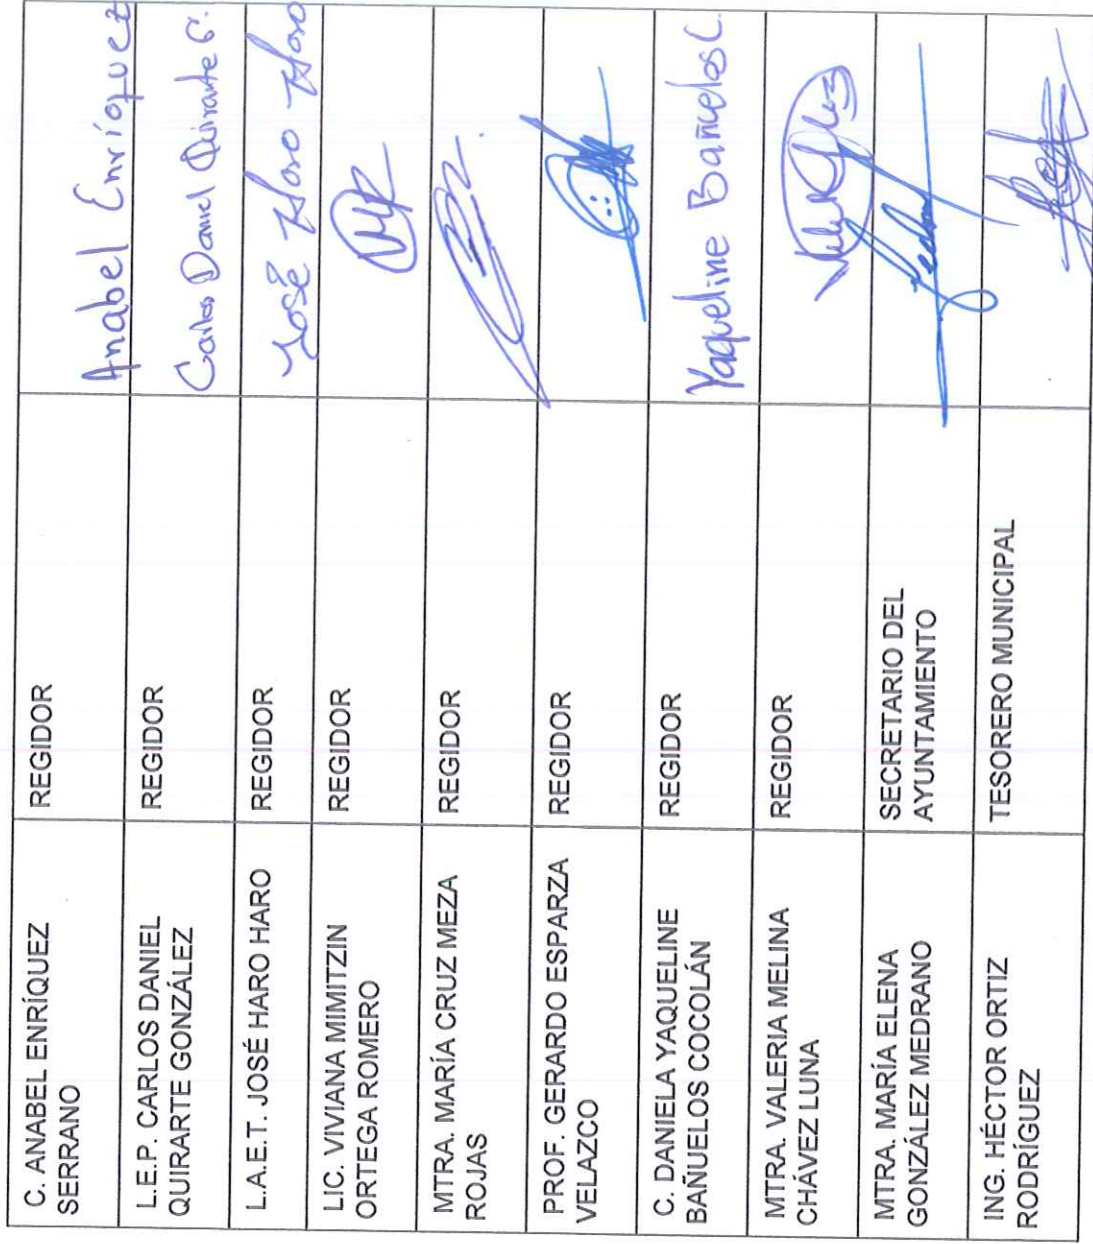 C. ANABEL ENRÍQUEZ
SERRANO
REGIDOR
Anabel Enríquez
L.E.P. CARLOS DANIEL
QUIRARTE GONZÁLEZ
REGIDOR
Carlos Daniel Quirarte G.
L.A.E.T. JOSÉ HARO HARO
REGIDOR
José Haro Haro
LIC. VIVIANA MIMITZIN
ORTEGA ROMERO
REGIDOR
MTRA. MARÍA CRUZ MEZA
ROJAS
REGIDOR
PROF. GERARDO ESPARZA
VELAZCO
REGIDOR
C. DANIELA YAQUELINE
BAÑUELOS COCOLÁN
REGIDOR
Yaqueline Bañuelos C.
MTRA. VALERIA MELINA
CHÁVEZ LUNA
REGIDOR
MTRA. MARÍA ELENA
GONZÁLEZ MEDRANO
SECRETARIO DEL
AYUNTAMIENTO
ING. HÉCTOR ORTIZ
RODRÍGUEZ
TESORERO MUNICIPAL